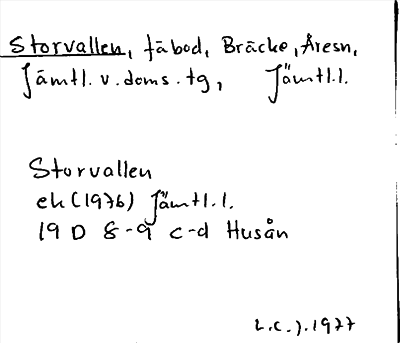 Storvallen, fäbod, Bräcke, Åresn,
Jämtl. v. doms. tg, Jämtl.l.
Storvallen
ek (1976) Jämtl.l.
19 D 8-9 c-d Husån
L.C.J. 1977